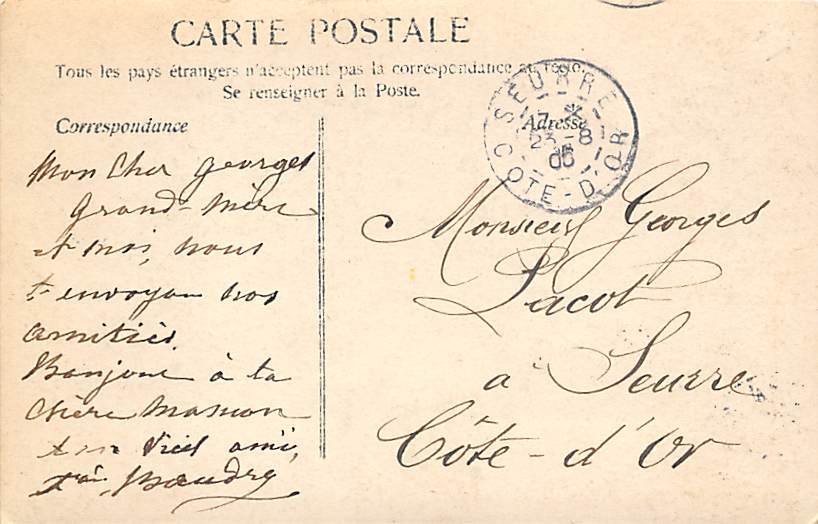 CARTE POSTALE
Tous les pays étrangers n'acceptent pas la correspondance au recto.
Se renseigner à la Poste.
Correspondance
Adresse
SEURRE
7
23-8
06
COTE-D'OR
Mon Cher Georges
Grand-mère
et moi, nous
t'envoyons nos
amitiés.
Bonjour à ta
chère maman
ton vieil ami,
Baudry
Monsieur Georges
Pacot
a Seurre
Côte-d'Or